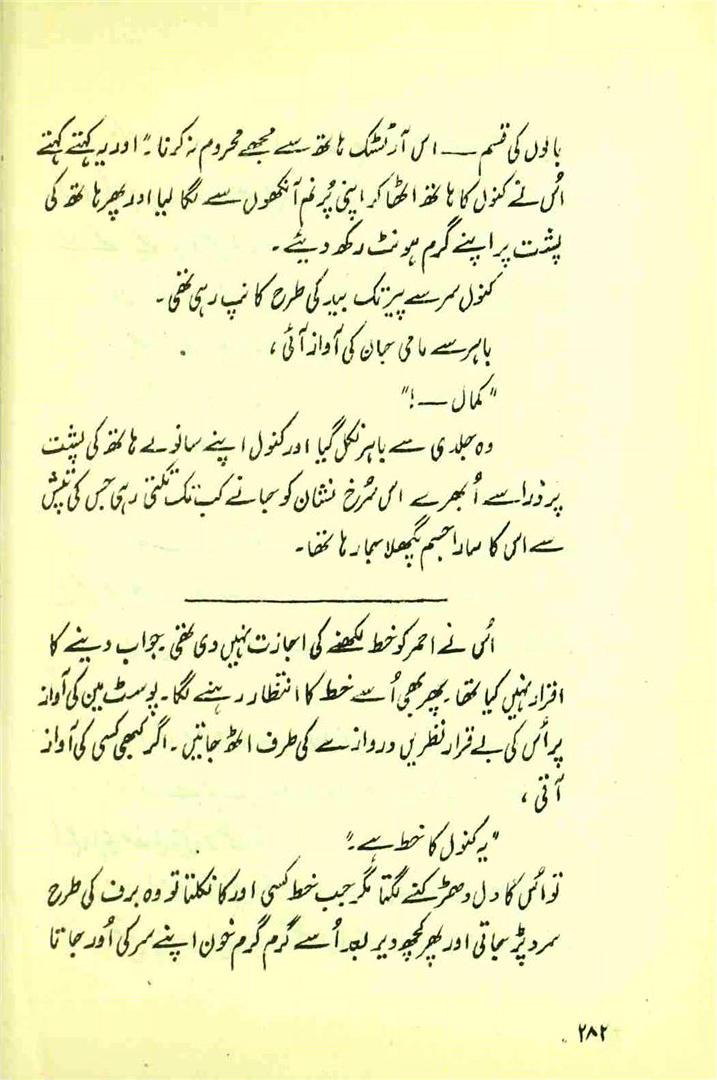 باتوں کی قسم — اس آرٹسٹک ہاتھ سے مجھے محروم نہ کرنا۔" اور یہ کہتے کہتے
اُس نے کنول کا ہاتھ اٹھا کر اپنی پُرنم آنکھوں سے لگا لیا اور پھر ہاتھ کی
پشت پر اپنے گرم ہونٹ رکھ دیئے۔
کنول سر سے پیر تک بید کی طرح کانپ رہی تھی۔
باہر سے مامی جان کی آواز آئی،
"کمال — !"
وہ جلدی سے باہر نکل گیا اور کنول اپنے سانولے ہاتھ کی پشت
پر ذرا سے اُبھرے اس سُرخ نشان کو جانے کب تک تکتی رہی جس کی تپش
سے اس کا سارا جسم پگھلا جا رہا تھا۔
اُس نے احمر کو خط لکھنے کی اجازت نہیں دی تھی۔ جواب دینے کا
اقرار نہیں کیا تھا۔ پھر بھی اُسے خط کا انتظار رہنے لگا۔ پوسٹ مین کی آواز
پر اُس کی بے قرار نظریں دروازے کی طرف اٹھ جاتیں۔ اگر کبھی کسی کی آواز
آتی،
"یہ کنول کا خط ہے۔"
تو اُس کا دل دھڑکنے لگتا مگر جب خط کسی اور کا نکلتا تو وہ برف کی طرح
سرد پڑ جاتی اور پھر کچھ دیر بعد اُسے گرم گرم خون اپنے سر کی اُور جاتا
۲۸۲